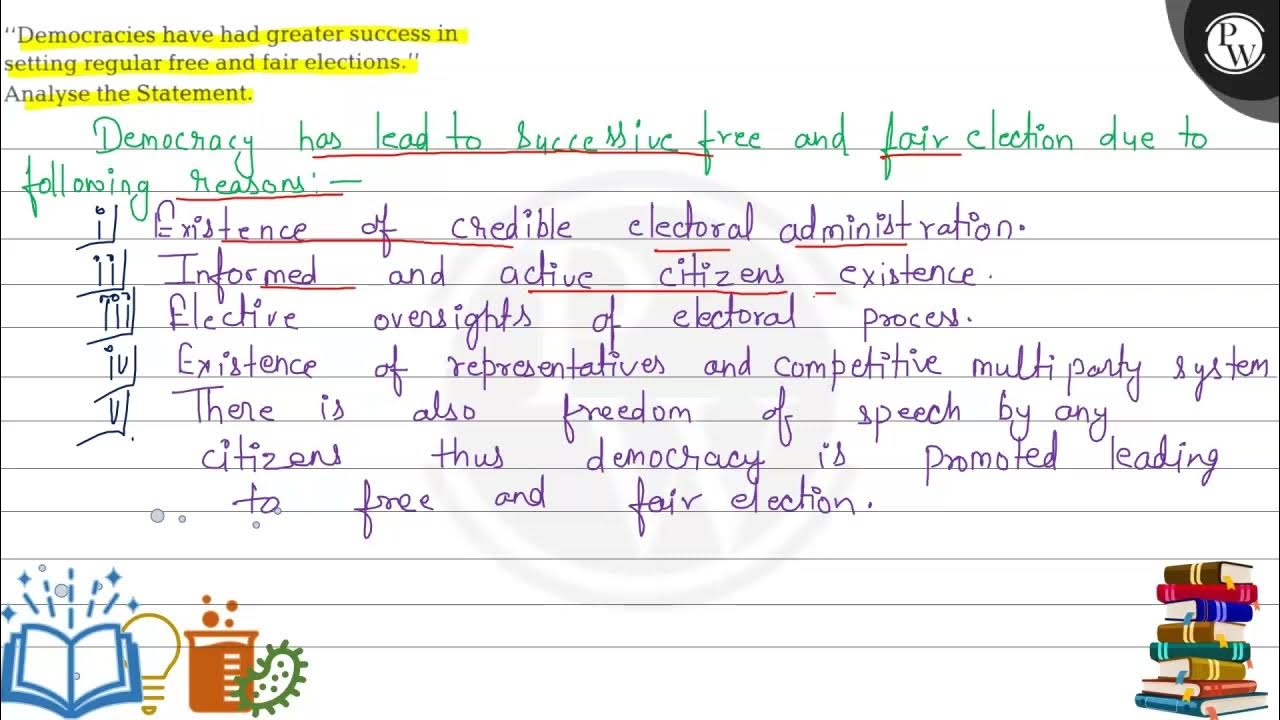 ‘‘Democracies have had greater success in
setting regular free and fair elections.’’
Analyse the Statement.
PW
Democracy has lead to successive free and fair election due to
following reasons:—
i) Existence of credible electoral administration.
ii) Informed and active citizens existence.
iii) Elective oversights of electoral process.
iv) Existence of representatives and competitive multi party system
v) There is also freedom of speech by any
citizens thus democracy is promoted leading
to free and fair election.